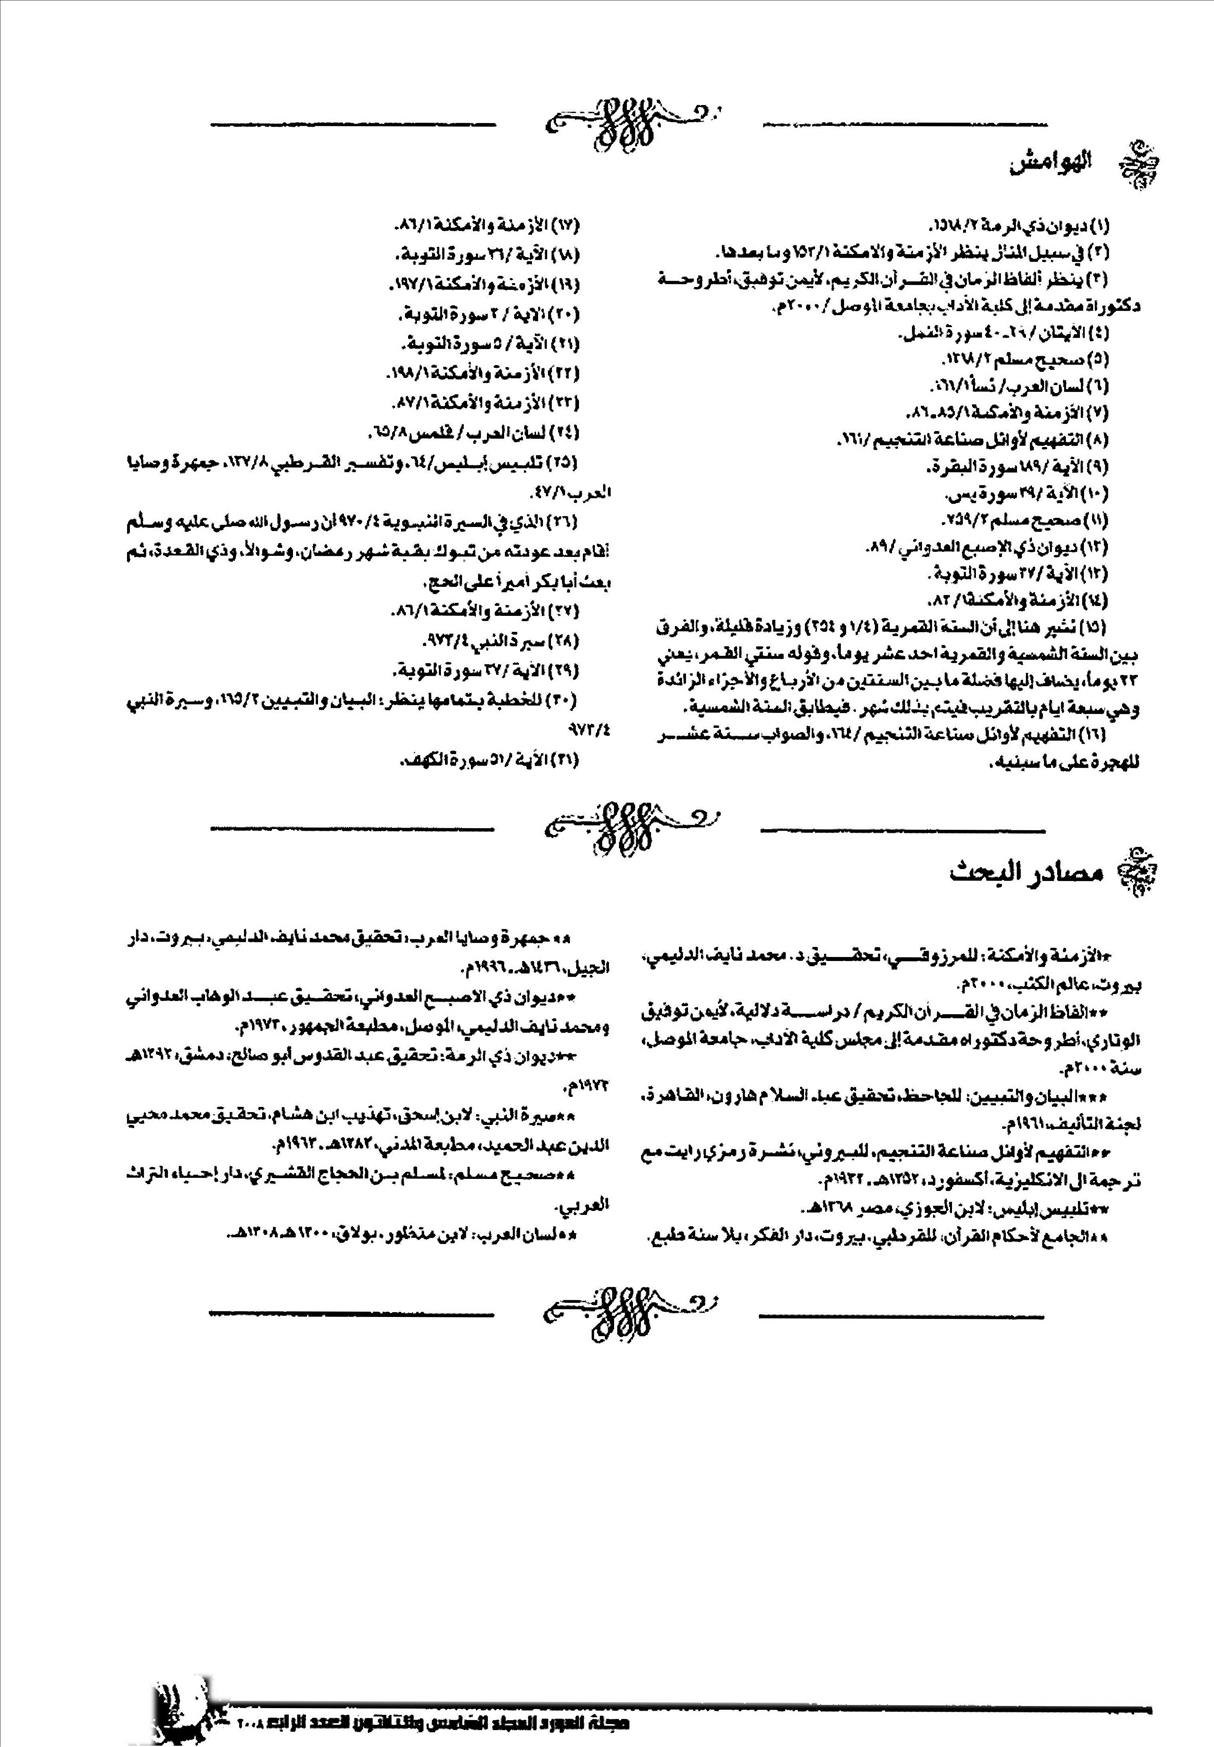 الهوامش
(١) ديوان ذي الرمة ١٥٦٨/٢.
(٢) في سبيل المثال ينظر الأزمنة والامكنة ١٥٣/١ وما بعدها.
(٣) ينظر ألفاظ الزمان في القرآن الكريم، لأيمن توفيق، أطروحة
دكتوراة مقدمة إلى كلية الآداب بجامعة الموصل /٢٠٠٠م.
(٤) الآيتان /٣٩ـ٤٠ سورة
(٥) صحيح مسلم ١٢٦٨/٢.
(٦) لسان العرب/ نسأ
(٧) الأزمنة والأمكنة ٨٥/١ـ٨٦.
(٨) التفهيم لأوائل صناعة التنجيم /١٦١.
(٩) الآية /١٨٩ سورة البقرة.
(١٠) الآية /٣٩ سورة يس.
(١١) صحيح مسلم ٧٥٩/٢.
(١٢) ديوان ذي الإصبع العدواني /٨٩.
(١٣) الآية /٣٧ سورة التوبة.
(١٤) الأزمنة والأمكنة
(١٥) نشير هنا إلى أن السنة القمرية (١/٤ و ٣٥٤) وزيادة قليلة، والفرق
بين السنة الشمسية والقمرية احد عشر يوماً، وقوله سنتي القمر، يعني
٢٢ يوماً، يضاف إليها فضلة ما بين السنتين من الأرباع والأجزاء الزائدة
وهي سبعة ايام بالتقريب فيتم بذلك شهر. فيطابق السنة الشمسية.
(١٦) التفهيم لأوائل صناعة التنجيم /١٦٤، والصواب سنة عشر
للهجرة على ما سبنيه.
(١٧) الأزمنة والأمكنة ٨٦/١.
(١٨) الآية /٣٦ سورة التوبة.
(١٩) الأزمنة والأمكنة ١٩٧/١.
(٢٠) الاية / ٢ سورة التوبة.
(٢١) الآية / ٥ سورة التوبة.
(٢٢) الأزمنة والأمكنة ١٩٨/١.
(٢٣) الأزمنة والأمكنة ٨٧/١.
(٢٤) لسان العرب/ قلمس ٦٥/٨.
(٢٥) تلبيس إبليس/٦٤، وتفسير القرطبي ١٣٧/٨، جمهرة وصايا
العرب ٤٧/١.
(٢٦) الذي في السيرة النبوية ٩٧٠/٤ ان رسول الله صلى عليه وسلم
أقام بعد عودته من تبوك بقية شهر رمضان، وشوالاً، وذي القعدة، ثم
بعث أبا بكر أميراً على الحج.
(٢٧) الأزمنة والأمكنة ٨٦/١.
(٢٨) سيرة النبي ٩٧٢/٤.
(٢٩) الآية /٣٧ سورة التوبة.
(٣٠) للخطبة بتمامها ينظر: البيان والتبيين ١٦٥/٢، وسيرة النبي
٩٧٢/٤
(٣١) الآية /٥١ سورة الكهف.
مصادر البحث
*الأزمنة والأمكنة: للمرزوقي، تحقيق د. محمد نايف الدليمي،
بيروت، عالم الكتب، ٢٠٠٠م.
**الفاظ الزمان في القرآن الكريم/ دراسة دلالية، لأيمن توفيق
الوتاري، أطروحة دكتوراه مقدمة إلى مجلس كلية الآداب، جامعة الموصل،
سنة ٢٠٠٠م.
***البيان والتبيين: للجاحظ، تحقيق عبد السلام هارون، القاهرة،
لجنة التأليف، ١٩٦١م.
**التفهيم لأوائل صناعة التنجيم، للبيروني، نشرة رمزي رايت مع
ترجمة الى الانكليزية، أكسفورد، ١٣٥٢هـ ـ ١٩٣٣م.
**تلبيس إبليس: لابن الجوزي، مصر ١٣٦٨هـ.
**الجامع لأحكام القرآن: للقرطبي، بيروت، دار الفكر، بلا سنة طبع.
**جمهرة وصايا العرب: تحقيق محمد نايف الدليمي، بيروت، دار
الجيل، ١٤٣٦هـ ـ ١٩٩٦م.
**ديوان ذي الاصبع العدواني، تحقيق عبد الوهاب العدواني
ومحمد نايف الدليمي، الموصل، مطبعة الجمهور، ١٩٧٣م.
**ديوان ذي الرمة: تحقيق عبد القدوس أبو صالح: دمشق، ١٣٩٢هـ
١٩٧٢م.
**سيرة النبي: لابن إسحق، تهذيب ابن هشام، تحقيق محمد محيي
الدين عبد الحميد، مطبعة المدني، ١٣٨٣هـ ـ ١٩٦٣م.
**صحيح مسلم: لمسلم بن الحجاج القشيري، دار إحياء التراث
العربي.
**لسان العرب: لابن منظور، بولاق، ١٣٠٠هـ ١٣٠٨هـ.
مجلة المورد المجلد الخامس والثلاثون العدد الرابع ٢٠٠٨